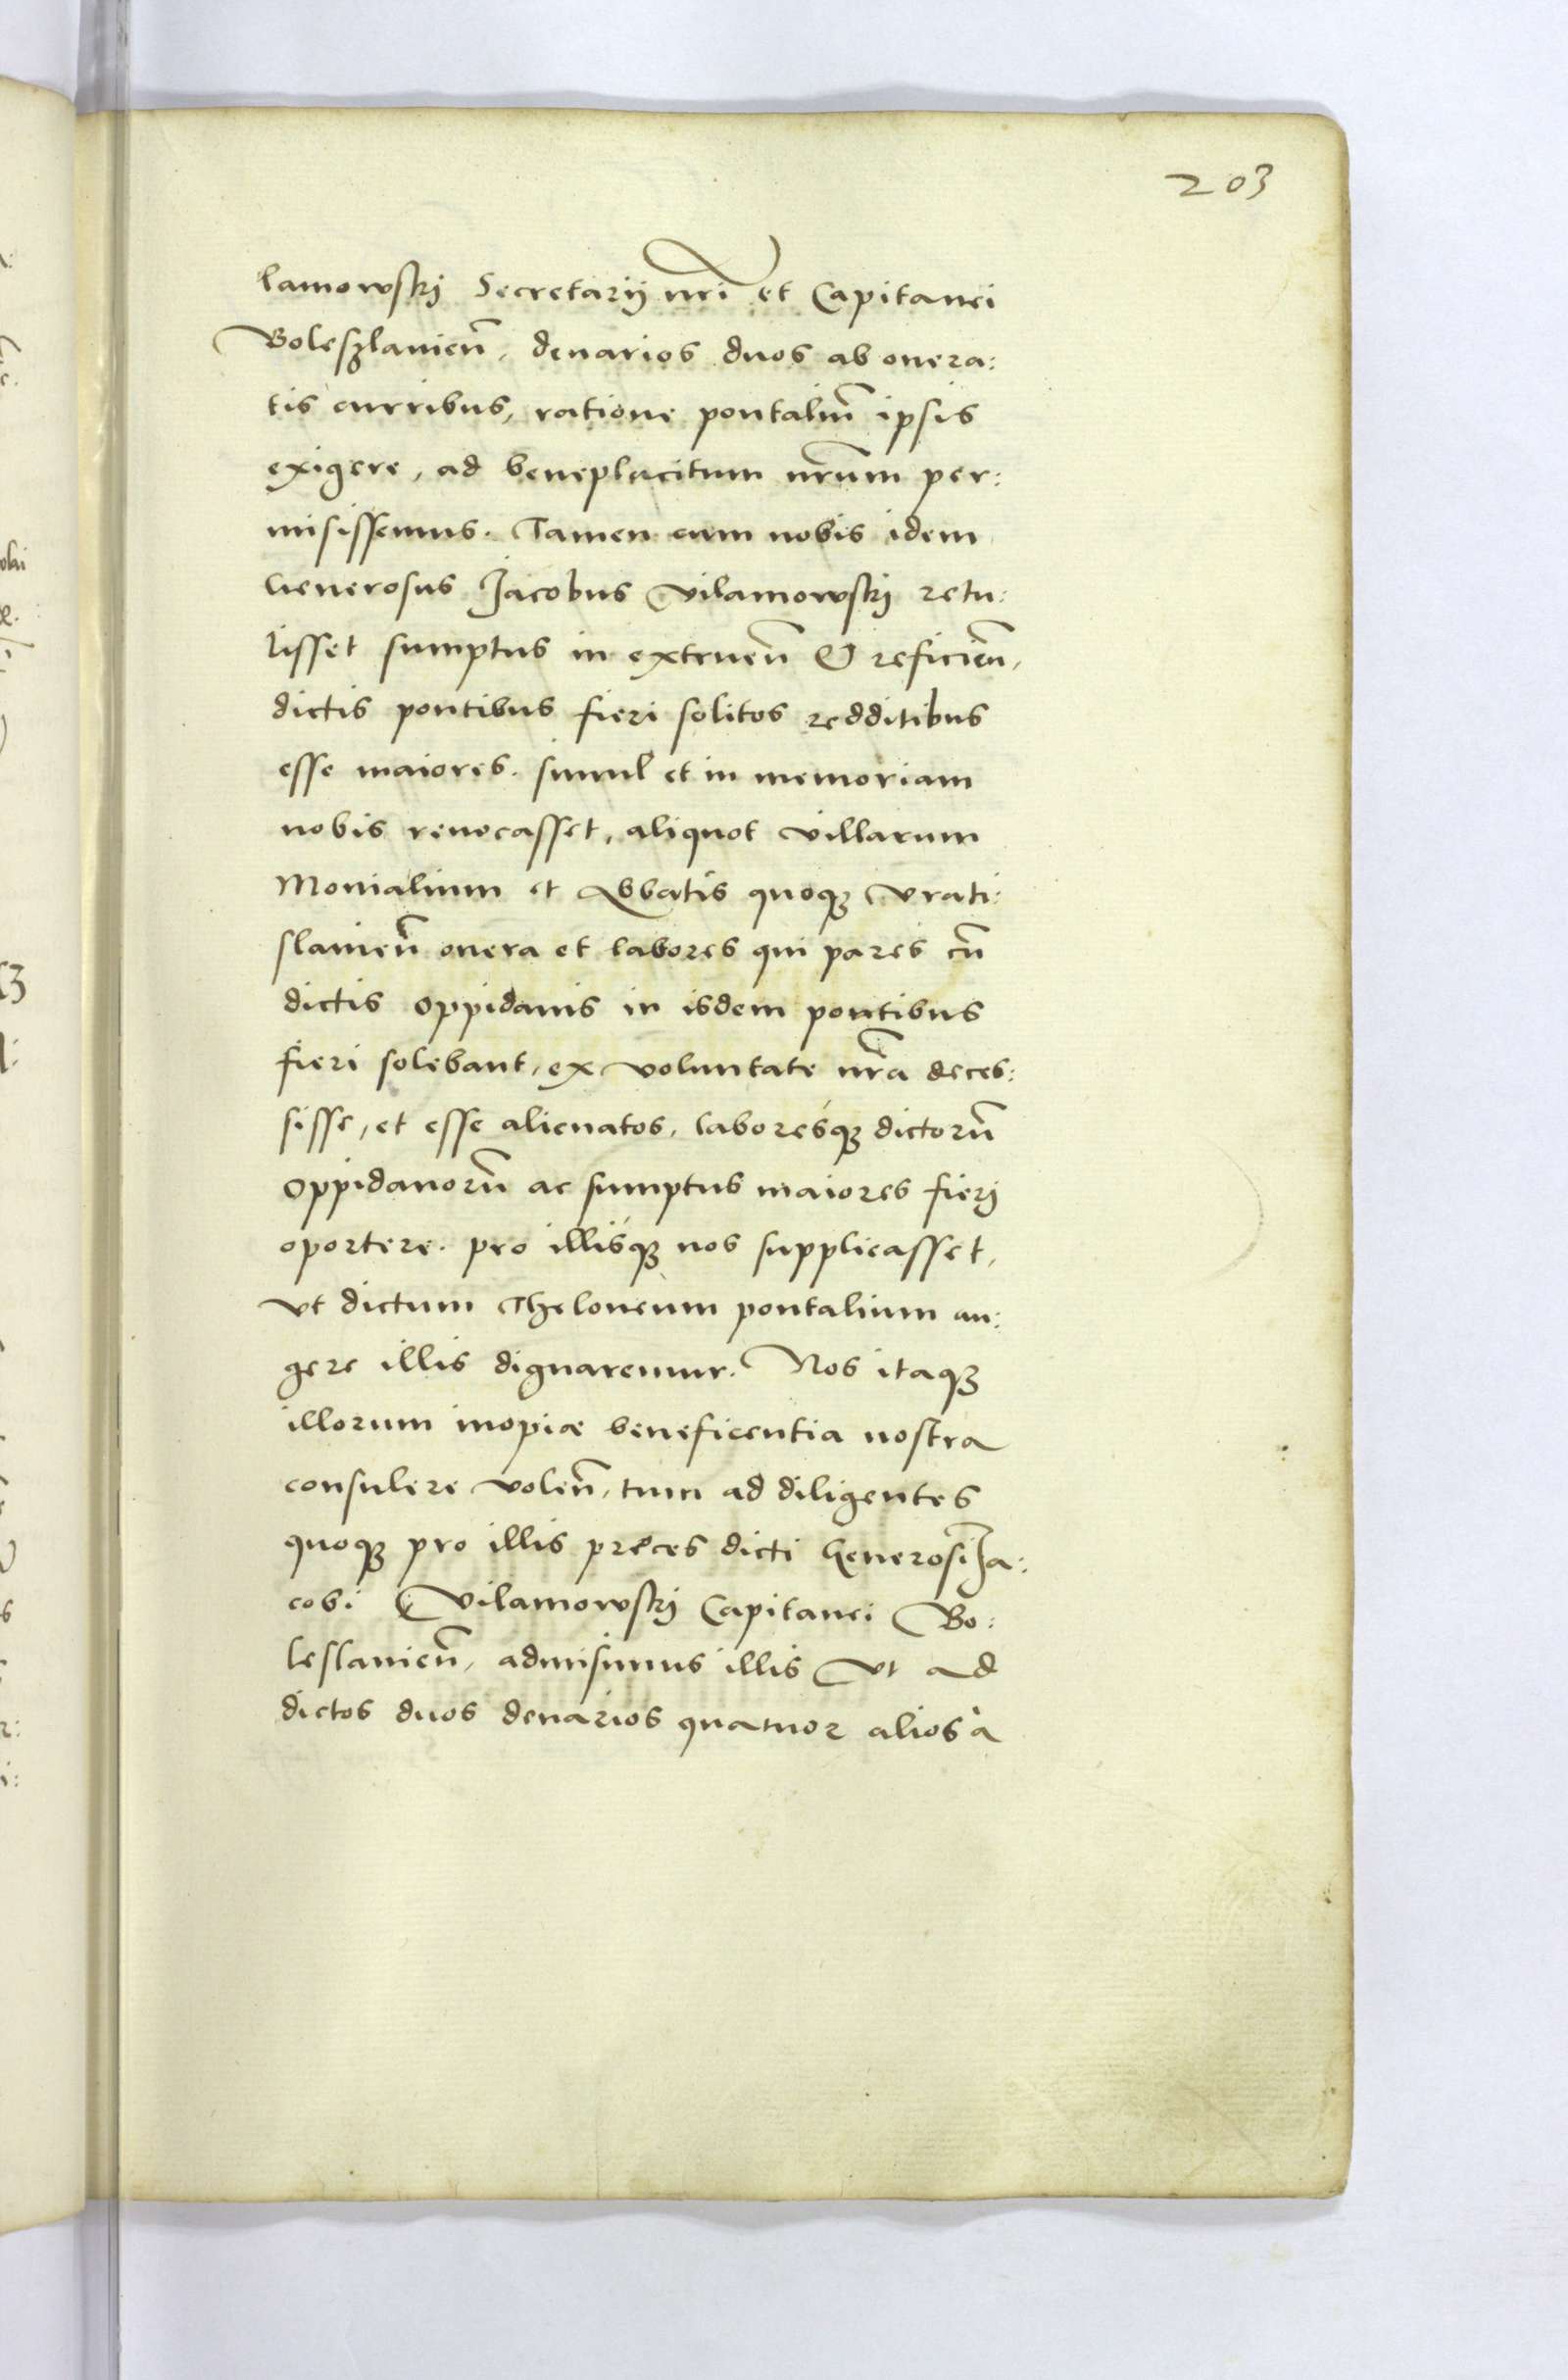 203
lamowskij Secretarij nri et Capitanei
Boleszlauien̄, denarios duos ab onera:
tis curribus, ratione pontaliū ipsis
exigere, ad beneplacitum nrūm per:
misissemus. Tamen cum nobis idem
Generosus Jacobus Vilamowskij retu:
lisset sumptus in extruen̄ & reficien̄,
dictis pontibus fieri solitos redditibus
esse maiores. simul et in memoriam
nobis reuocasset, aliquot villarum
Monialium et Abbatis quoqꝫ Vrati:
slauien̄ onera et labores qui pares cū
dictis oppidanis in isdem pontibus
fieri solebant, ex voluntate nrā deces:
sisse, et esse alienatos, laboresqꝫ dictorū
oppidanorū ac sumptus maiores fierj
oportere. pro illisqꝫ nos supplicasset,
vt dictum Theloneum pontalium au:
gere illis dignaremur. Nos itaqꝫ
illorum inopiæ beneficentia nostra
consulere volen̄, tum ad diligentes
quoqꝫ pro illis preces dicti Generosi Ja:
cobi Vilamowskij Capitanei Bo:
leslauien̄, admisimus illis Vt ad
dictos duos denarios quatuor alios à